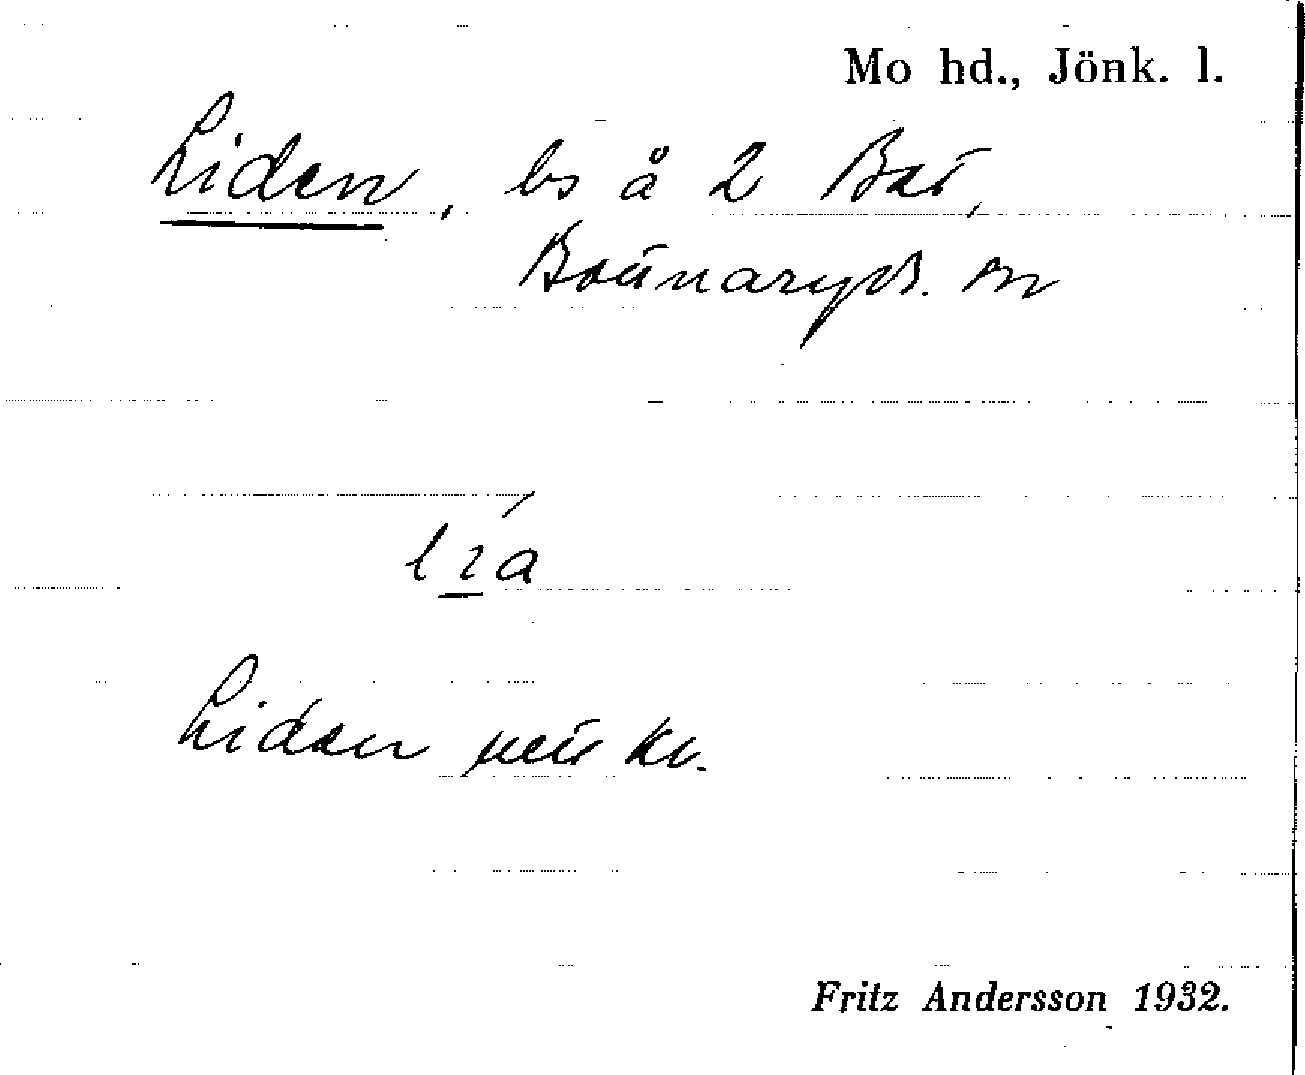 Mo hd., Jönk. l.
Liden, bs å 2 Bar,
Bottnaryds. sn
lia
Liden
Fritz Andersson 1932.